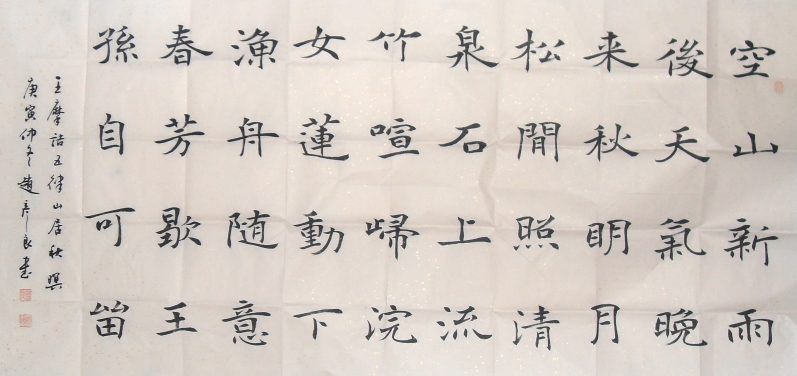 空山新雨
後天氣晚
来秋眀月
松閒照清
泉石上流
竹喧歸浣
女蓮動下
漁舟随意
春芳歇王
孫自可留
王摩詰五律山居秋暝
庚寅仲冬趙彦良書